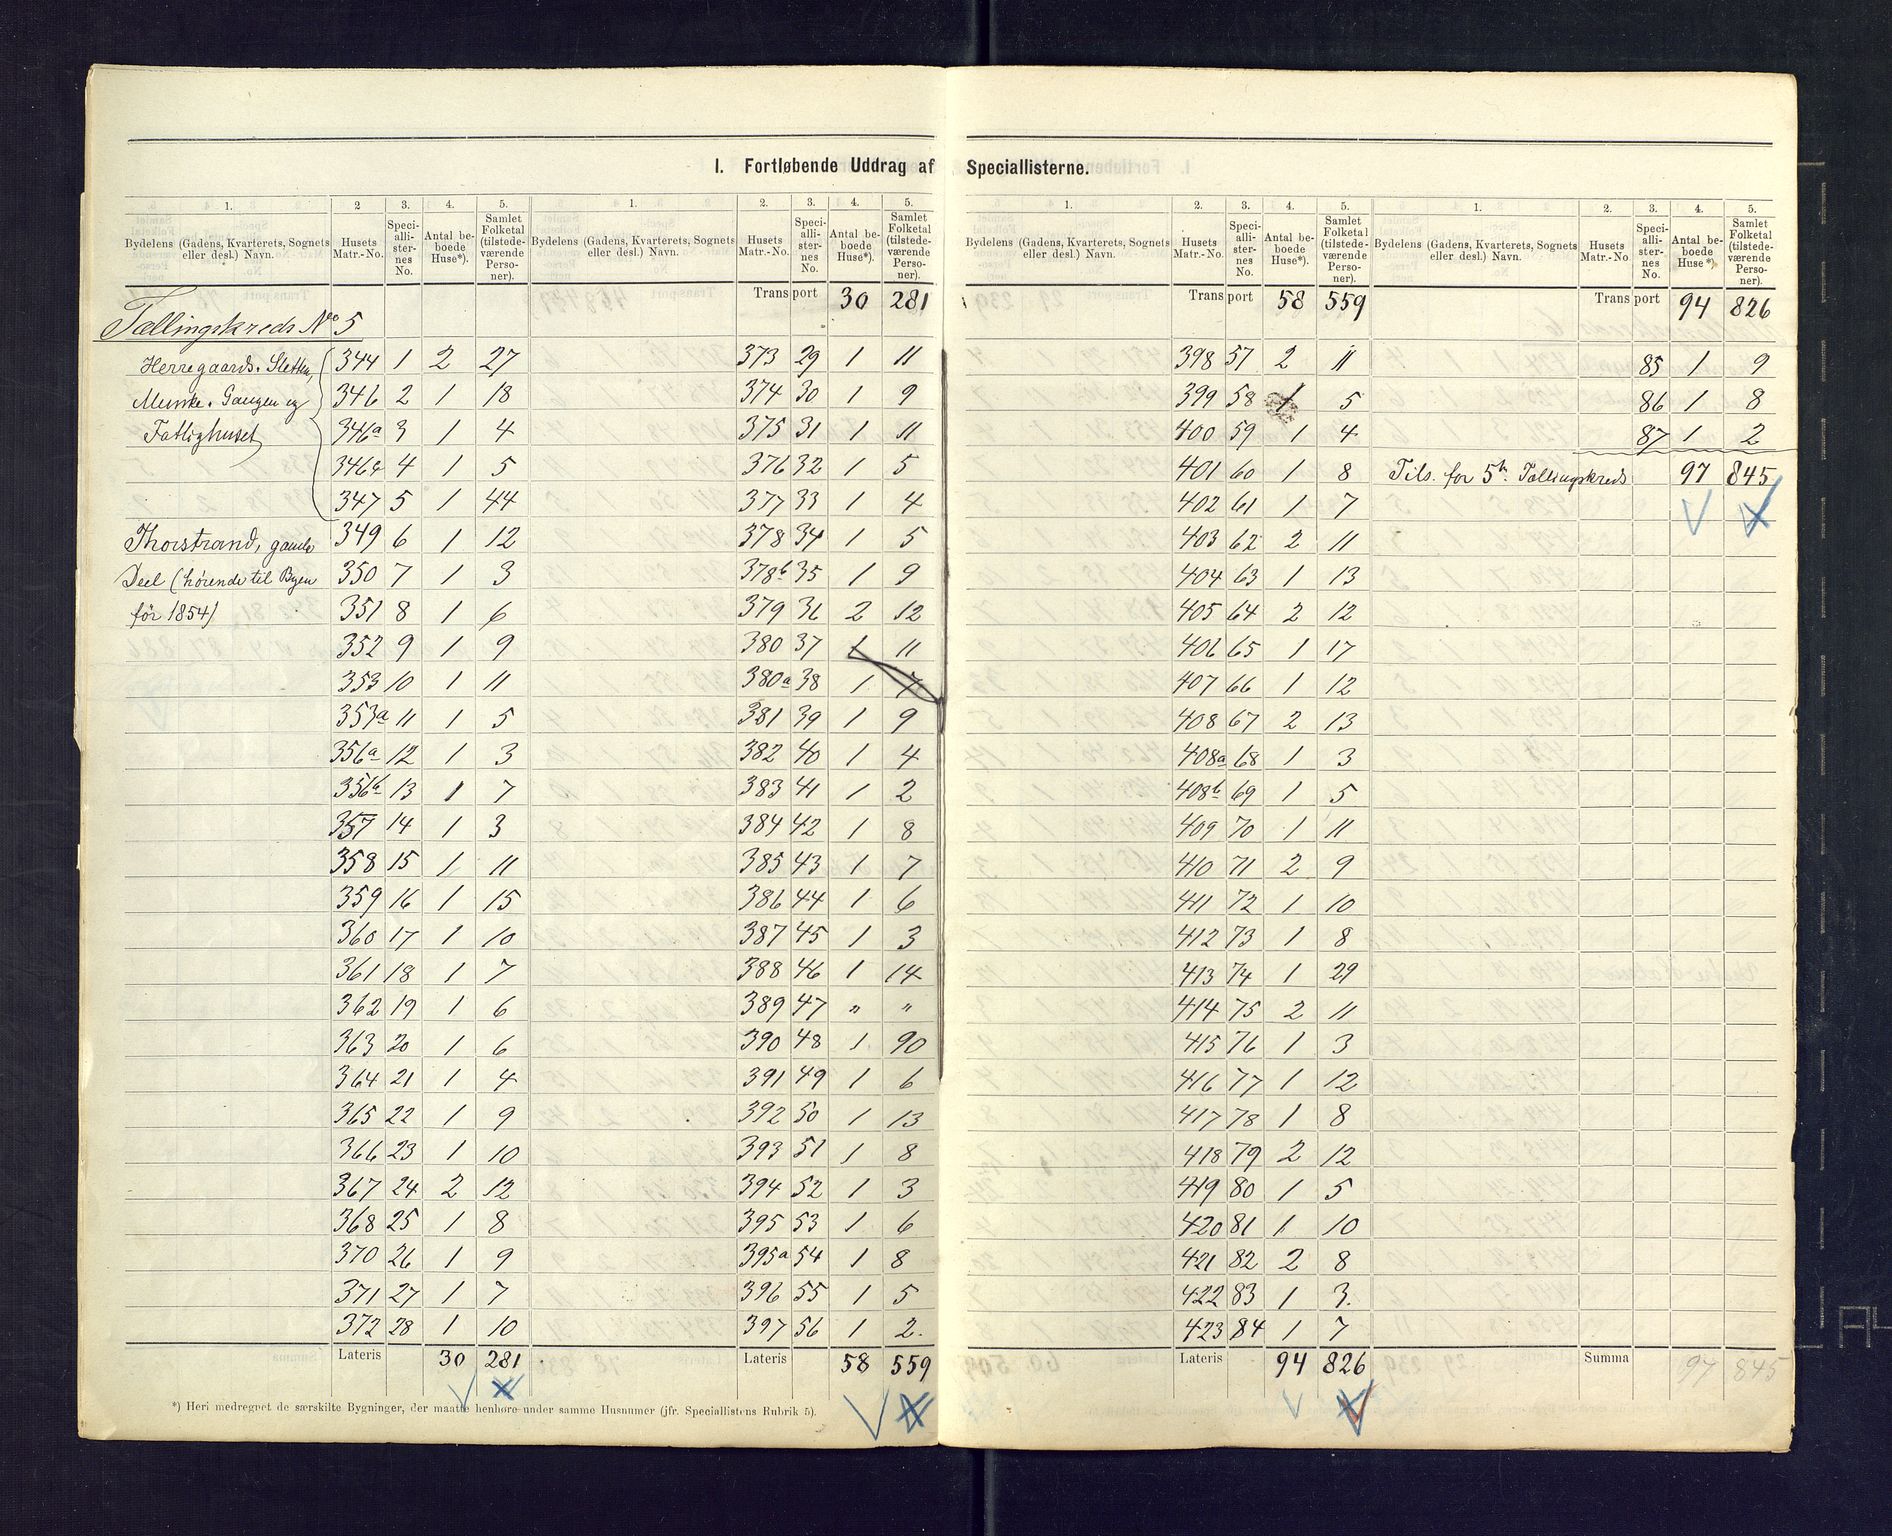 I. Fortløbende Uddrag af Speciallisterne.
1. 2 3. 4. 5.
Bydelens (Gadens, Kvarterets, Sognets eller desl.) Navn. Husets Matr.-No. Speciallisternes No. Antal beboede Huse*). Samlet Folketal (tilstedeværende Personer).
Tællingskreds No 5
Herregaards-Sletten,
Munke-Gangen og
Fattighuset
344 1 2 27
346 2 1 18
346a 3 1 4
346c 4 1 5
347 5 1 44
Thorstrand, gamle
Deel (hørende til Byen
før 1854)
349 6 1 12
350 7 1 3
351 8 1 6
352 9 1 9
353 10 1 11
353a 11 1 5
356a 12 1 3
356b 13 1 7
357 14 1 3
358 15 1 11
359 16 1 15
360 17 1 10
361 18 1 7
362 19 1 6
363 20 1 6
364 21 1 4
365 22 1 9
366 23 1 10
367 24 2 12
368 25 1 8
370 26 1 9
371 27 1 7
372 28 1 10
Lateris 30 281
1. 2. 3. 4. 5.
Bydelens (Gadens, Kvarterets, Sognets eller desl.) Navn. Husets Matr.-No. Speciallisternes No. Antal beboede Huse*). Samlet Folketal (tilstedeværende Personer).
Transport 30 281
373 29 1 11
374 30 1 9
375 31 1 11
376 32 1 5
377 33 1 4
378 34 1 5
378b 35 1 9
379 36 2 12
380 37 1 11
380a 38 1 7
381 39 1 9
382 40 1 4
383 41 1 2
384 42 1 8
385 43 1 7
386 44 1 6
387 45 1 3
388 46 1 14
389 47 " "
390 48 1 90
391 49 1 6
392 50 1 13
393 51 1 8
394 52 1 3
395 53 1 6
395a 54 1 8
396 55 1 5
397 56 1 2.
Lateris 58 559
*) Heri medregnet de særskilte Bygninger, der maatte henhøre under samme Husnumer (jfr. Speciallistens Rubrik 5).
1. 2. 3. 4. 5.
Bydelens (Gadens, Kvarterets, Sognets eller desl.) Navn. Husets Matr.-No. Speciallisternes No. Antal beboede Huse*). Samlet Folketal (tilstedeværende Personer).
Transport 58 559
398 57 2 11
399 58 1 5
400 59 1 4
401 60 1 8
402 61 1 7
403 62 2 11
404 63 1 13
405 64 2 12
406 65 1 17
407 66 1 12
408 67 2 13
408a 68 1 3
408b 69 1 5
409 70 1 11
410 71 2 9
411 72 1 10
412 73 1 8
413 74 1 29
414 75 2 11
415 76 1 3
416 77 1 12
417 78 1 8
418 79 2 12
419 80 1 5
420 81 1 10
421 82 2 8
422 83 1 3.
423 84 1 7
Lateris 94 826
1. 2. 3. 4. 5.
Bydelens (Gadens, Kvarterets, Sognets eller desl.) Navn. Husets Matr.-No. Speciallisternes No. Antal beboede Huse*). Samlet Folketal (tilstedeværende Personer).
Transport 94 826
85 1 9
86 1 8
87 1 2
Tils. for 5te Tællingskreds 97 845
Summa 97 845